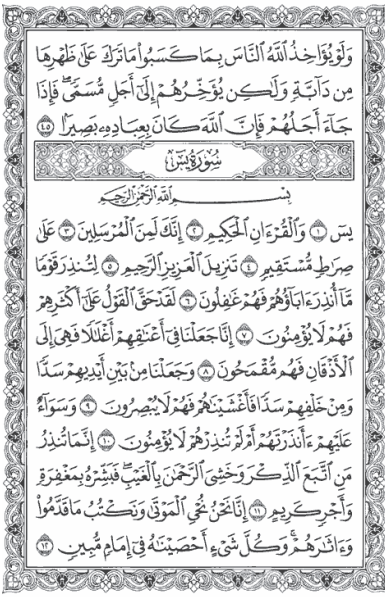 وَلَوْ يُؤَاخِذُ ٱللَّهُ ٱلنَّاسَ بِمَا كَسَبُوا۟ مَا تَرَكَ عَلَىٰ ظَهْرِهَا
مِن دَآبَّةٍ وَلَٰكِن يُؤَخِّرُهُمْ إِلَىٰٓ أَجَلٍ مُّسَمًّى ۖ فَإِذَا
جَآءَ أَجَلُهُمْ فَإِنَّ ٱللَّهَ كَانَ بِعِبَادِهِۦ بَصِيرًۢا ٤٥
سُورَةُ يسٓ
بِسْمِ ٱللَّهِ ٱلرَّحْمَٰنِ ٱلرَّحِيمِ
يسٓ ١ وَٱلْقُرْءَانِ ٱلْحَكِيمِ ٢ إِنَّكَ لَمِنَ ٱلْمُرْسَلِينَ ٣ عَلَىٰ
صِرَٰطٍ مُّسْتَقِيمٍ ٤ تَنزِيلَ ٱلْعَزِيزِ ٱلرَّحِيمِ ٥ لِتُنذِرَ قَوْمًا
مَّآ أُنذِرَ ءَابَآؤُهُمْ فَهُمْ غَٰفِلُونَ ٦ لَقَدْ حَقَّ ٱلْقَوْلُ عَلَىٰٓ أَكْثَرِهِمْ
فَهُمْ لَا يُؤْمِنُونَ ٧ إِنَّا جَعَلْنَا فِىٓ أَعْنَٰقِهِمْ أَغْلَٰلًا فَهِىَ إِلَى
ٱلْأَذْقَانِ فَهُم مُّقْمَحُونَ ٨ وَجَعَلْنَا مِنۢ بَيْنِ أَيْدِيهِمْ سَدًّا
وَمِنْ خَلْفِهِمْ سَدًّا فَأَغْشَيْنَٰهُمْ فَهُمْ لَا يُبْصِرُونَ ٩ وَسَوَآءٌ
عَلَيْهِمْ ءَأَنذَرْتَهُمْ أَمْ لَمْ تُنذِرْهُمْ لَا يُؤْمِنُونَ ١٠ إِنَّمَا تُنذِرُ
مَنِ ٱتَّبَعَ ٱلذِّكْرَ وَخَشِىَ ٱلرَّحْمَٰنَ بِٱلْغَيْبِ ۖ فَبَشِّرْهُ بِمَغْفِرَةٍ
وَأَجْرٍ كَرِيمٍ ١١ إِنَّا نَحْنُ نُحْىِ ٱلْمَوْتَىٰ وَنَكْتُبُ مَا قَدَّمُوا۟
وَءَاثَٰرَهُمْ ۚ وَكُلَّ شَىْءٍ أَحْصَيْنَٰهُ فِىٓ إِمَامٍ مُّبِينٍ ١٢